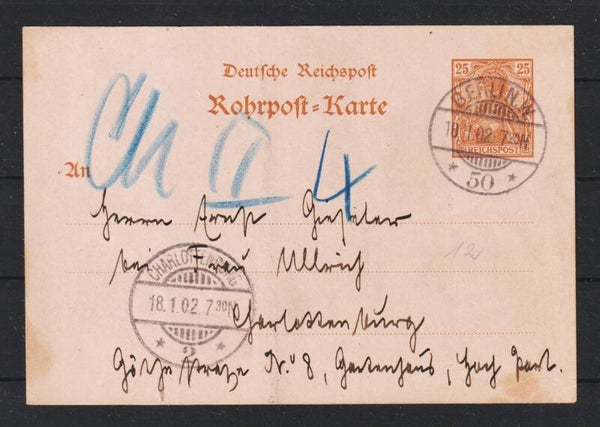 Deutsche Reichspost
Rohrpost-Karte
25 25
REICHSPOST
BERLIN.W.
18.1.02. 7 30N
* 50 *
Ch II 4
An
Herrn Ernst Gieseler
bei Frau Ullrich
12
CHARLOTTENBURG
18.1.02. 7 30N
* 2 *
Charlottenburg
Göthe Straße No 8, Gartenhaus, Hoch Part.